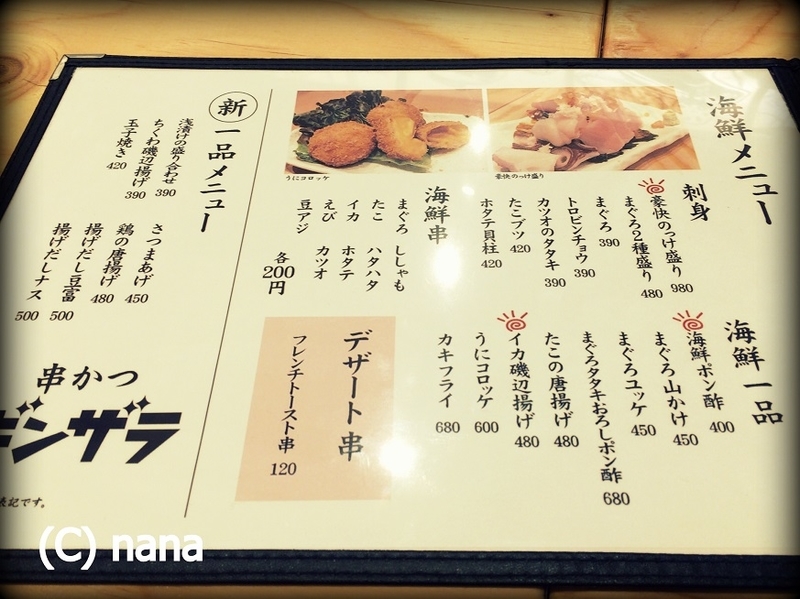 海鮮メニュー
刺身
豪快のっけ盛り 980
まぐろ2種盛り 480
まぐろ 390
トロビンチョウ 390
カツオのタタキ 390
たこブツ 420
ホタテ貝柱 420
海鮮一品
海鮮ポン酢 400
まぐろ山かけ 450
まぐろユッケ 450
まぐろタタキおろしポン酢 680
たこの唐揚げ 480
イカ磯辺揚げ 480
うにコロッケ 600
カキフライ 680
豪快のっけ盛り
うにコロッケ
海鮮串
まぐろ ししゃも
たこ ハタハタ
イカ ホタテ
えび カツオ
豆アジ
各200円
デザート串
フレンチトースト串 120
新一品メニュー
浅漬けの盛り合わせ 390
ちくわ磯辺揚げ 390
玉子焼き 420
さつまあげ 450
鶏の唐揚げ 480
揚げだし豆富 500
揚げだしナス 500
串かつ
ギンザラ
表記です。
(C) nana